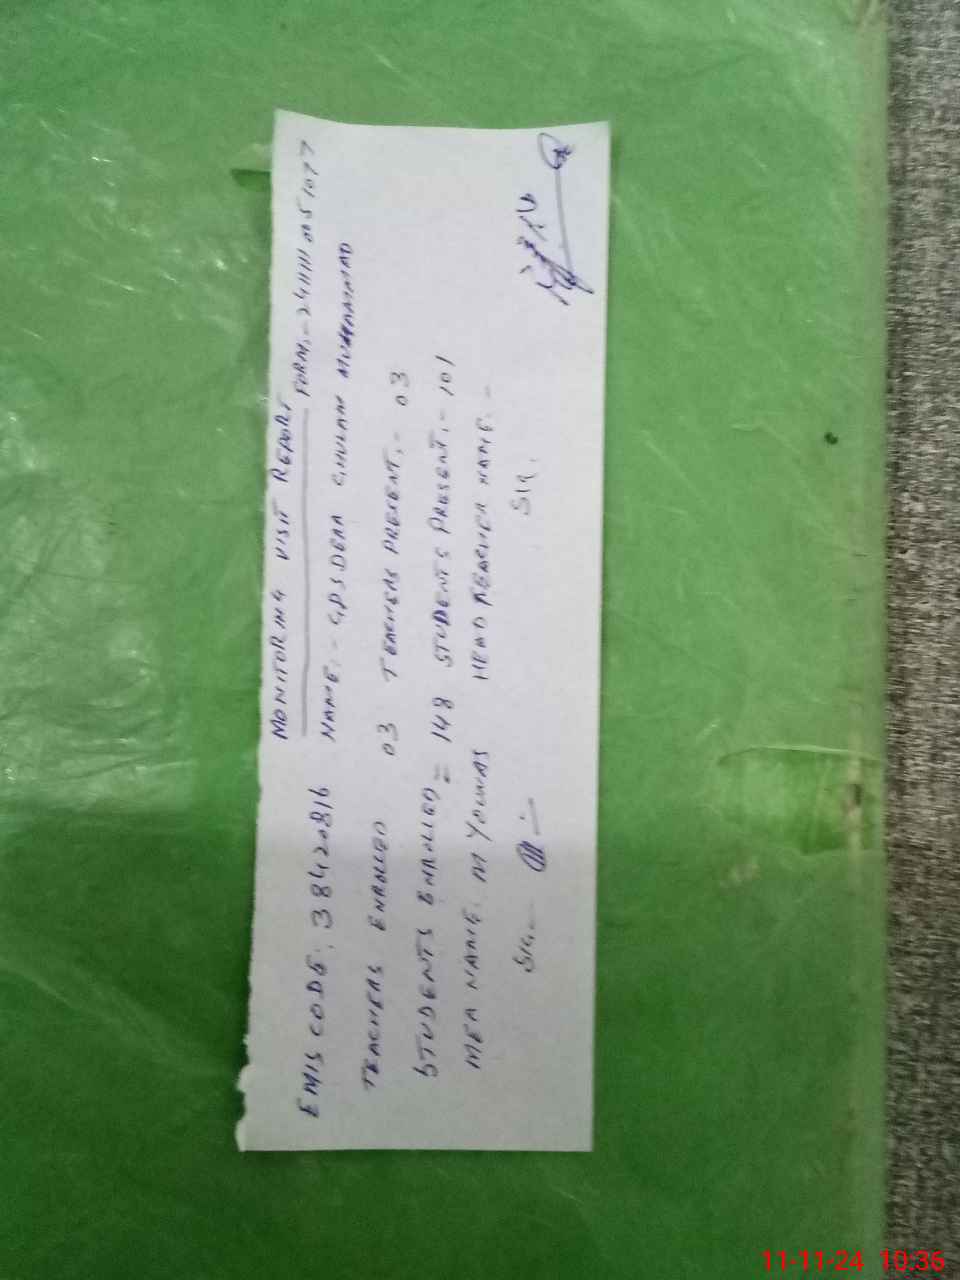 MONITORING VISIT REPORT
EMIS CODE: 38420816 NAME:- GPS DERA GHULAM MUHAMMAD
TEACHERS ENROLLED 03 TEACHERS PRESENT:- 03
STUDENTS ENROLLED = 148 STUDENTS PRESENT:- 101
MEA NAME: M YOUNAS HEAD TEACHER NAME:-
SIG:- SIG:
11-11-24 10:36